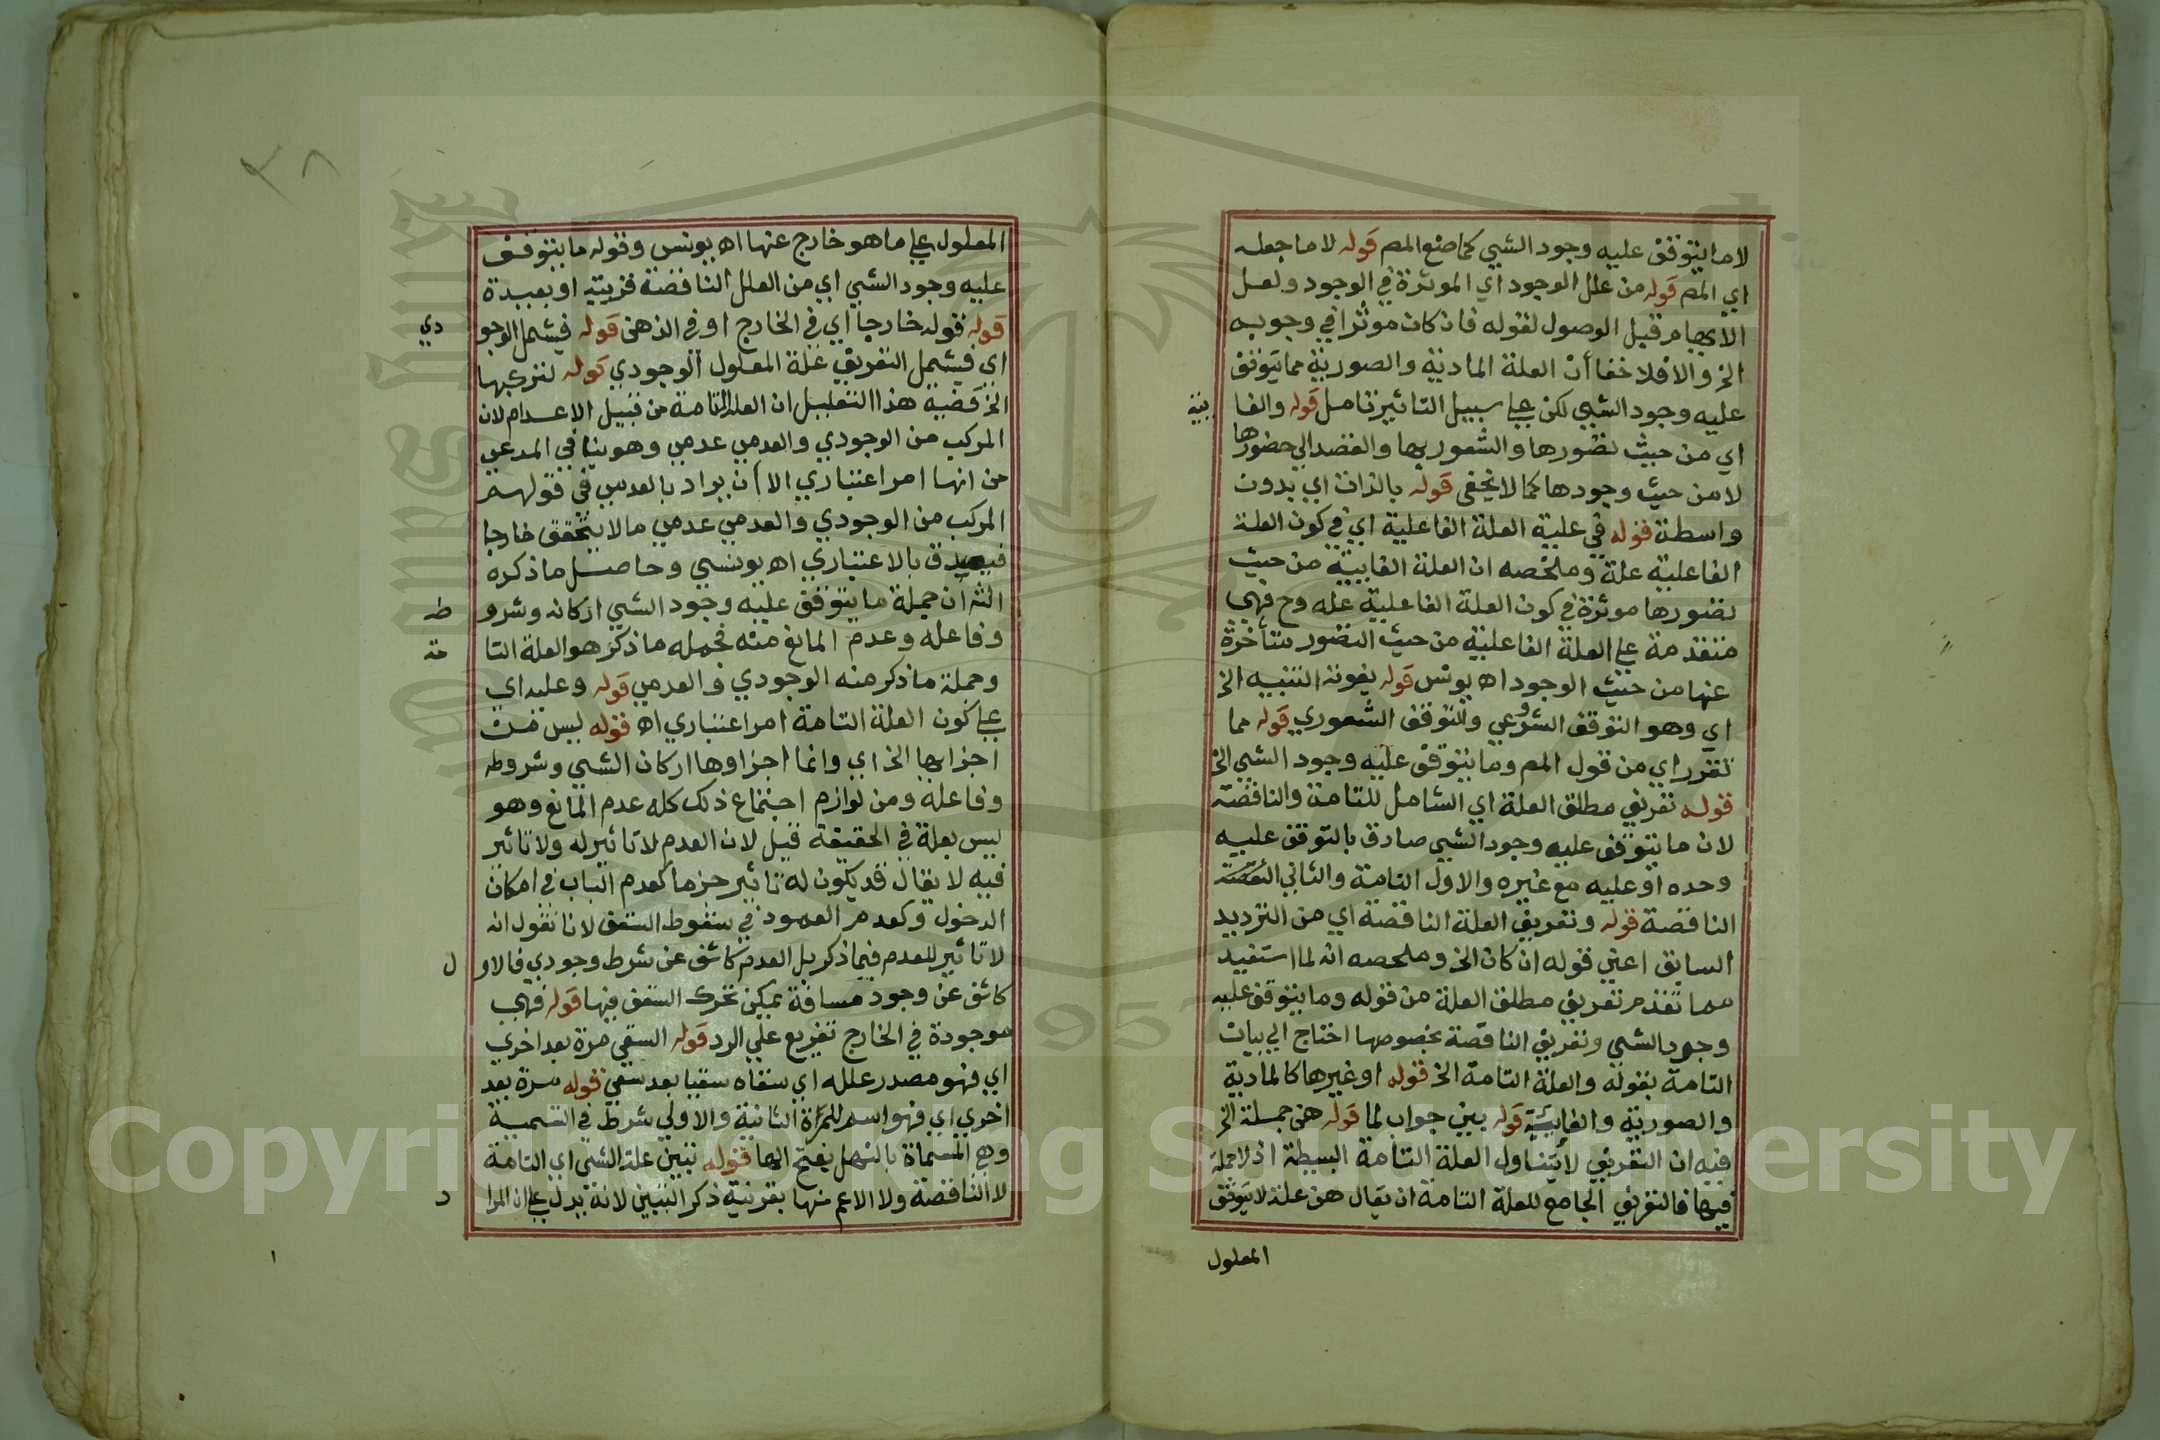 لا ما يتوقف عليه وجود الشي كما صنع المص قوله لا ما جعله
اي المص قوله من علل الوجود اي الموثرة في الوجود ولعل
الايهام قبل الوصول لقوله فان كان موثرا في وجوبه
الخ والا فلا خفا أن العلة المادية والصورية مما يتوقف
عليه وجود الشي لكن على سبيل التاثير تامل قوله والغا
ئية
اي من حيث تصورها والشعور بها والقصد الي حضورها
لا من حيث وجودها كما لا يخفى قوله بالذات اي بدون
واسطة قوله في علية العلة الفاعلية اي في كون العلة
الفاعلية علة وملخصه ان العلة الغايية من حيث
تصورها موثرة في كون العلة الفاعلية علة وح فهي
متقدمة على العلة الفاعلية من حيث التصور متأخرة
عنها من حيث الوجود اه يونس قوله يفوته التنبيه الخ
اي وهو التوقف الشروعي والتوقف الشعوري قوله مما
تقرر اي من قول المص وما يتوقف عليه وجود الشي الخ
قوله تعريف مطلق العلة اي الشامل للتامة والناقصة
لان ما يتوقف عليه وجود الشي صادق بالتوقف عليه
وحده او عليه مع غيره والاول التامة والثاني
الناقصة قوله وتعريف العلة الناقصة اي من الترديد
السابق اعني قوله ان كان الخ وملخصه انه لما استفيد
مما تقدم تعريف مطلق العلة من قوله وما يتوقف عليه
وجود الشي وتعريف الناقصة بخصوصها احتاج الي بيان
التامة بقوله والعلة التامة الخ قوله او غيرها كالمادية
والصورية والغايية قوله بين جواب لما قوله هى جملة الخ
فيه ان التعريف لا يتناول العلة التامة البسيطة اذ لا جملة
فيها فالتعريف الجامع للعلة التامة ان يقال هى علة لا يتوقف
المعلول
المعلول على ما هو خارج عنها اه يونس وقوله ما يتوقف
عليه وجود الشي اي من العلل الناقصة قريبة او بعيدة
قوله قوله خارجا اي في الخارج او في الذهن قوله فيشمل الوجو
دي
اي فيشمل التعريف علة المعلول الوجودي قوله لتركبها
الخ قضية هذا التعليل ان العلة التامة من قبيل الاعدام لان
المركب من الوجودي والعدمي عدمي وهو ينافي المدعى
من انها امر اعتباري الا أن يراد بالعدمي في قولهم
المركب من الوجودي والعدمي عدمي ما لا يتحقق خارجا
فيصدق بالاعتباري اه يونسي وحاصل ما ذكره
الش ان جملة ما يتوقف عليه وجود الشي اركانه وشرو
طه
وفاعله وعدم المانع منه فجمله ما ذكر هو العلة التا
مة
وجملة ما ذكر منه الوجودي والعدمي قوله وعليه اي
على كون العلة التامة امرا عتباري اه قوله ليس من
اجزايها الخ اي وانما اجزاوها اركان الشي وشروطه
وفاعله ومن لوازم اجتماع ذلك كله عدم المانع وهو
ليس بعلة في الحقيقة قيل لان العدم لا تاثير له ولا تاثير
فيه لا يقال قد يكون له تاثير جزما كعدم الباب في امكان
الدخول وكعدم العمود في سقوط السقف لانا نقول انه
لا تاثير للعدم فيما ذكر بل العدم كاشف عن شرط وجودي فالاو
ل
كاشف عن وجود مسافة يمكن تحرك السقف فيها قوله فهي
موجودة في الخارج تفريع علي الرد قوله السقي مرة بعد اخري
اي فهو مصدر علله اي سقاه سقيا بعد سقي قوله مرة بعد
اخري اي فهو اسم للمرة الثانية والاولي شرط في التسمية
وهي المسماة بالنهل بفتح الها قوله تبين علة الشي اي التامة
لا الناقصة ولا الاعم منها بقرينة ذكر التبيين لانه يدل على ان المرا
د